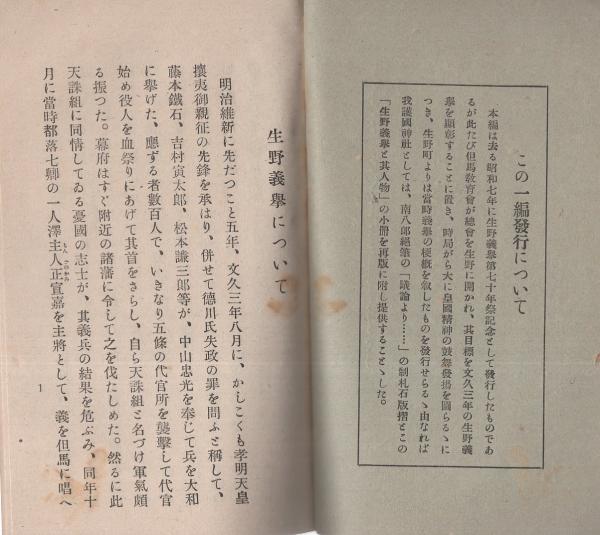 この一編發行について
本編は去る昭和七年に生野義擧第七十年祭記念として發行したものであ
るが此たび但馬敎育會が總會を生野に開かれ、其目標を文久三年の生野義
擧を顯彰することに置き、時局がら大に皇國精神の鼓舞發揚を圖らるゝに
つき、生野町よりは當時義擧の梗槪を叙したものを發行せらるゝ由なれば
我護國神社としては、南八郎絕筆の「議論より……」の制札石版摺とこの
「生野義擧と其人物」の小册を再版に附し提供することゝした。
生野義擧について
明治維新に先だつこと五年、文久三年八月に、かしこくも孝明天皇
攘夷御親征の先鋒を承はり、併せて德川氏失政の罪を問ふと稱して、
藤本鐵石、吉村寅太郎、松本謙三郎等が、中山忠光を奉じて兵を大和
に擧げた、應ずる者數百人で、いきなり五條の代官所を襲擊して代官
始め役人を血祭りにあげて其首をさらし、自ら天誅組と名づけ軍氣頗
る振つた。幕府はすぐ附近の諸藩に令して之を伐たしめた。然るに此
天誅組に同情してゐる憂國の志士が、其義兵の結果を危ぶみ、同年十
月に當時都落七卿の一人澤主人正宣嘉を主將として、義を但馬に唱へ
1